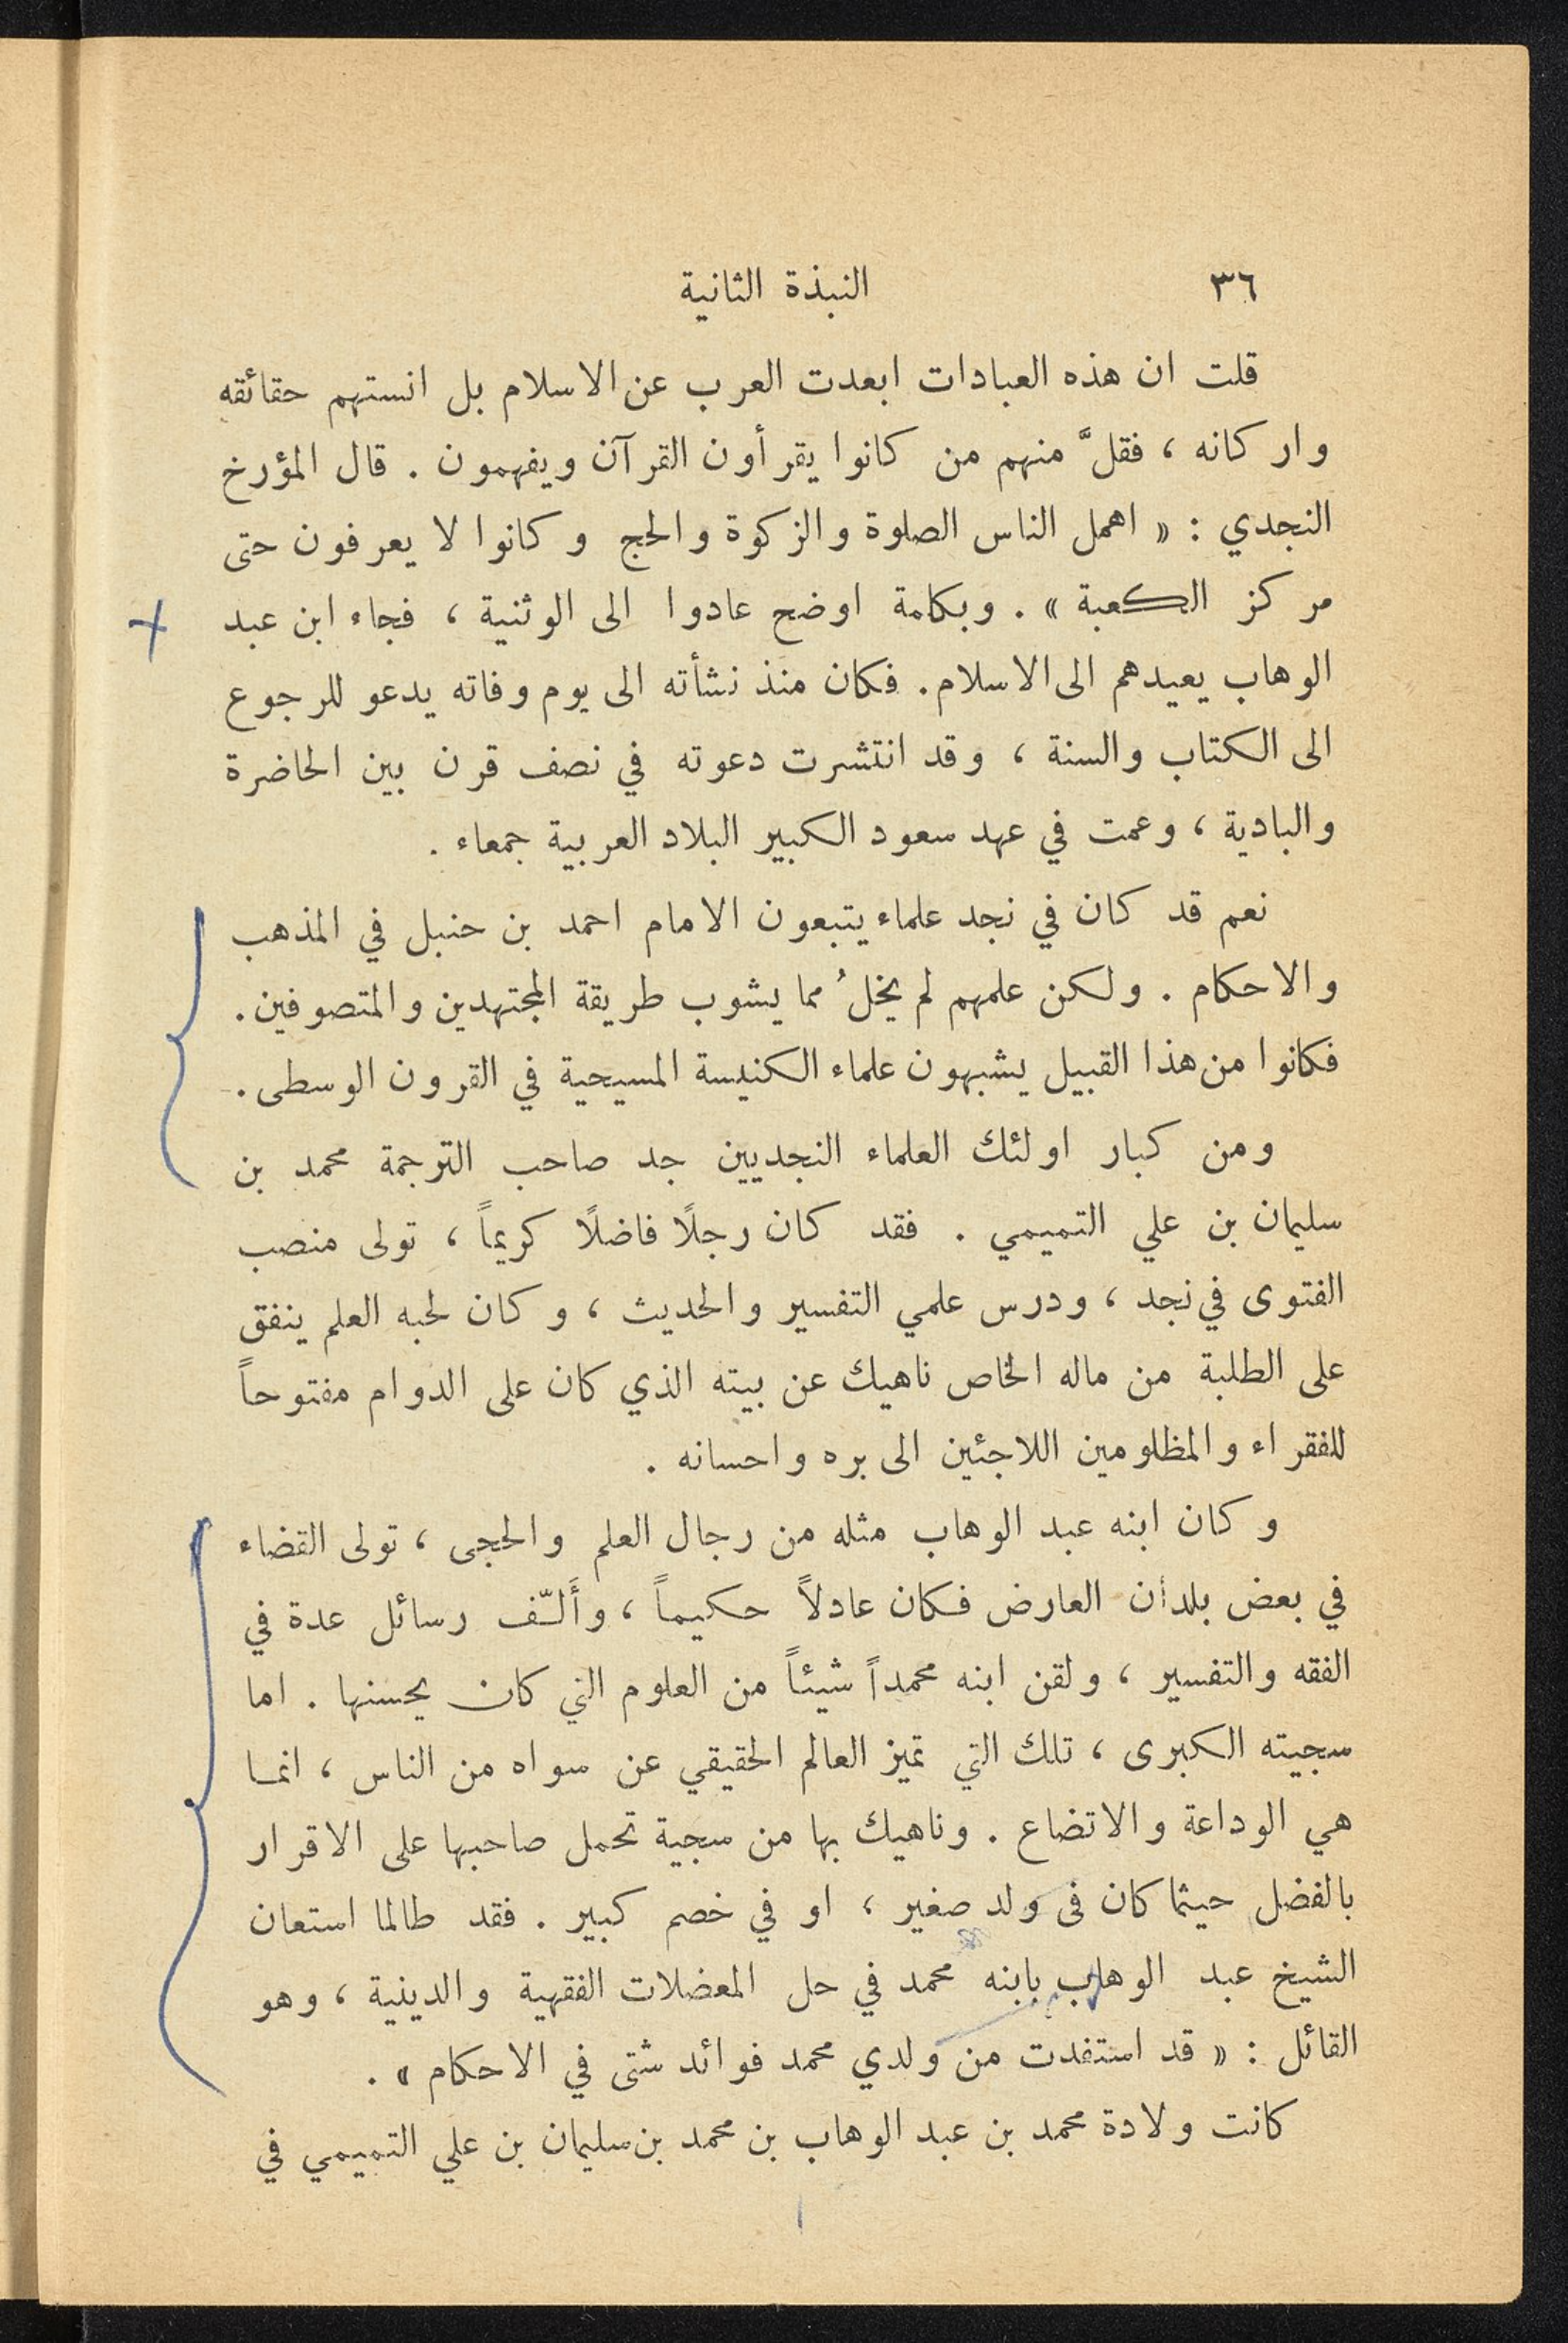 ٣٦ النبذة الثانية
قلت ان هذه العبادات ابعدت العرب عن الاسلام بل انستهم حقائقه
واركانه ، فقلَّ منهم من كانوا يقرأون القرآن ويفهمون . قال المؤرخ
النجدي : « اهمل الناس الصلوة والزكوة والحج وكانوا لا يعرفون حتى
مركز الكعبة » . وبكلمة اوضح عادوا الى الوثنية ، فجاء ابن عبد
الوهاب يعيدهم الى الاسلام. فكان منذ نشأته الى يوم وفاته يدعو للرجوع
الى الكتاب والسنة ، وقد انتشرت دعوته في نصف قرن بين الحاضرة
والبادية ، وعمت في عهد سعود الكبير البلاد العربية جمعاء .
نعم قد كان في نجد علماء يتبعون الامام احمد بن حنبل في المذهب
والاحكام . ولكن علمهم لم يخلُ مما يشوب طريقة المجتهدين والمتصوفين.
فكانوا من هذا القبيل يشبهون علماء الكنيسة المسيحية في القرون الوسطى.
ومن كبار اولئك العلماء النجديين جد صاحب الترجمة محمد بن
سليمان بن علي التميمي . فقد كان رجلًا فاضلًا كريماً ، تولى منصب
الفتوى في نجد ، ودرس علمي التفسير والحديث ، وكان لحبه العلم ينفق
على الطلبة من ماله الخاص ناهيك عن بيته الذي كان على الدوام مفتوحاً
للفقراء والمظلومين اللاجئين الى بره واحسانه .
وكان ابنه عبد الوهاب مثله من رجال العلم والحجى ، تولى القضاء
في بعض بلدان العارض فكان عادلاً حكيماً ، وأَلّف رسائل عدة في
الفقه والتفسير ، ولقن ابنه محمداً شيئاً من العلوم التي كان يحسنها . اما
سجيته الكبرى ، تلك التي تميز العالم الحقيقي عن سواه من الناس ، انما
هي الوداعة والاتضاع . وناهيك بها من سجية تحمل صاحبها على الاقرار
بالفضل حيثما كان في ولد صغير ، او في خصم كبير . فقد طالما استعان
الشيخ عبد الوهاب بابنه محمد في حل المعضلات الفقهية والدينية ، وهو
القائل : « قد استفدت من ولدي محمد فوائد شتى في الاحكام » .
كانت ولادة محمد بن عبد الوهاب بن محمد بن سليمان بن علي التميمي في